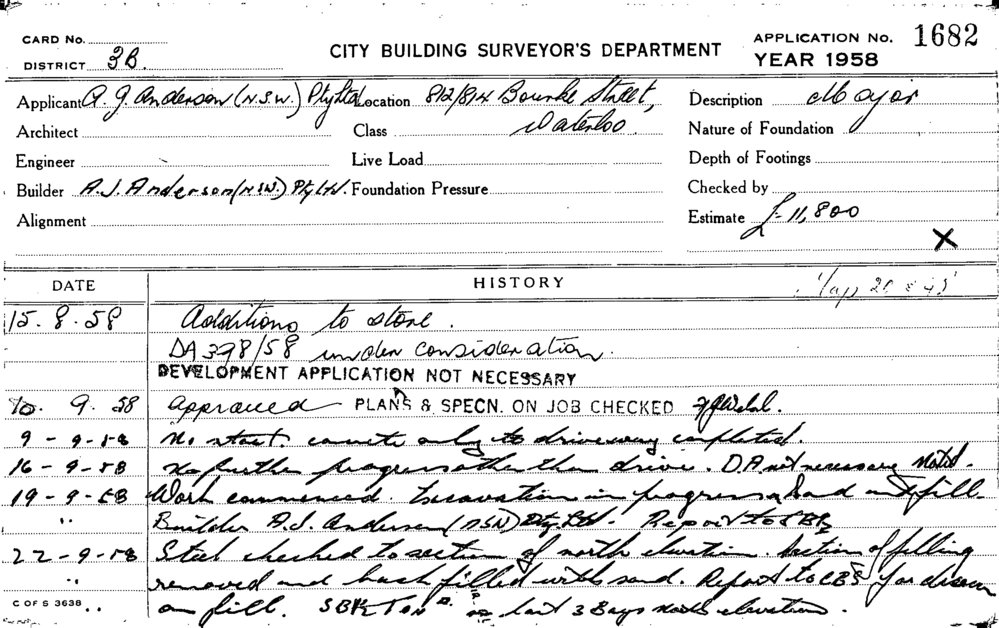 CARD No.
DISTRICT 3B.
CITY BUILDING SURVEYOR'S DEPARTMENT
APPLICATION No. 1682
YEAR 1958
Applicant A. J. Anderson (N.S.W.) Pty Ltd Location 812/814 Bourke Street, Description Major
Architect Class Waterloo. Nature of Foundation
Engineer Live Load Depth of Footings
Builder A.J. Anderson (NSW) Pty Ltd. Foundation Pressure Checked by
Alignment Estimate £11,800
X
DATE HISTORY
15.8.58 Additions to store.
DA 398/58 under consideration.
DEVELOPMENT APPLICATION NOT NECESSARY
9.58 Approved PLANS & SPECN. ON JOB CHECKED
9-9-58 No start concrete only to driveway completed.
16-9-58 No further progress other than drive. D.A not necessary Noted.
19-9-58 Work commenced. Excavation in progress fill.
" Builder A.J. Anderson (NSW) Pty Ltd. Report to
22-9-58 Steel checked to section of north elevation. Section of filling
" removed and back filled with sand. Report to for
C OF S 3638 .. on fill. last 3 Bays north elevation.